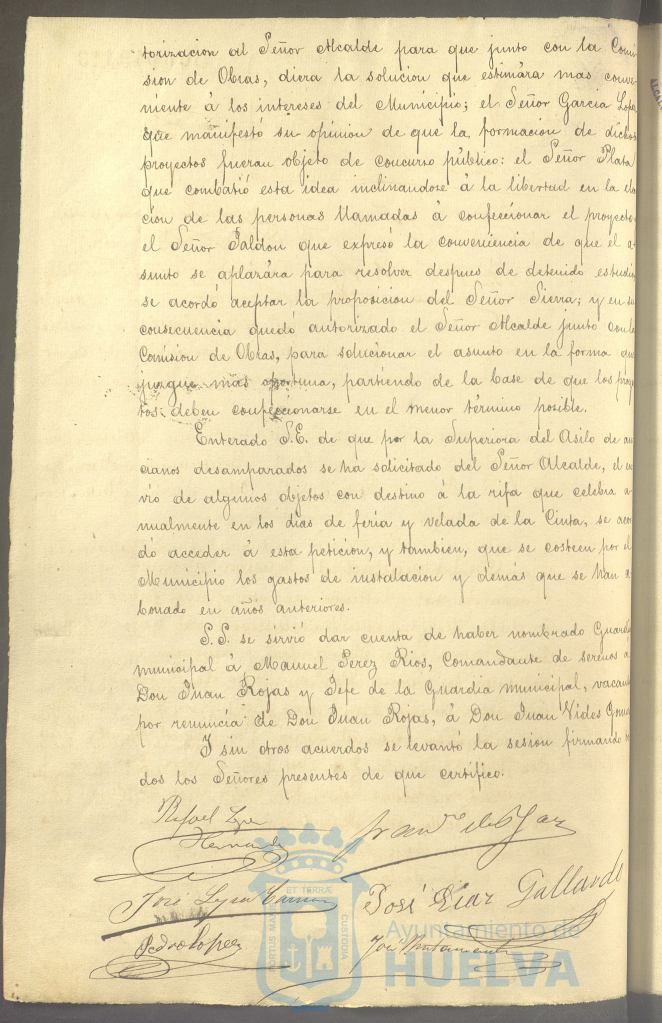 torizacion al Señor Alcalde para que junto con la Comi
sion de Obras, diera la solucion que estimára mas conve-
niente á los intereses del Municipio; el Señor Garcia Lopez
que manifestó su opinion de que la formacion de dichos
proyectos fueran objeto de concurso público: el Señor Plata
que combatió esta idea inclinandose á la libertad en la elec
cion de las personas llamadas á confeccionar el proyecto
el Señor Saldon que expresó la conveniencia de que el a-
sunto se aplazára para resolver despues de detenido estudio
se acordó aceptar la proposicion del Señor Sierra; y en su
consecuencia quedó autorizado el Señor Alcalde junto con la
Comision de Obras, para solucionar el asunto en la forma que
juzgue mas oportuna, partiendo de la base de que los proy
tos deben confeccionarse en el menor término posible.
Enterado S.E. de que por la Superiora del Asilo de an
cianos desamparados se ha solicitado del Señor Alcalde, el en
vio de algunos objetos con destino á la rifa que celebra a-
nualmente en los dias de feria y velada de la Cinta, se acor
dó acceder á esta peticion, y tambien, que se costeen por el
Municipio los gastos de instalacion y demás que se han a
bonado en años anteriores.
S.S. se sirvió dar cuenta de haber nombrado Guardia
municipal á Manuel Perez Rios, Comandante de serenos a
Don Juan Rojas y Jefe de la Guardia municipal, vacante
por renuncia de Don Juan Rojas, á Don Juan Vides Gomez
Y sin otros acuerdos se levantó la sesion firmando to
dos los Señores presentes de que certifico.
Rafael
Hernandez
José
José Diaz Gallardo
Pedro Lopez
José
PORTUS MARIS ET TERRÆ CUSTODIA
Ayuntamiento de
HUELVA